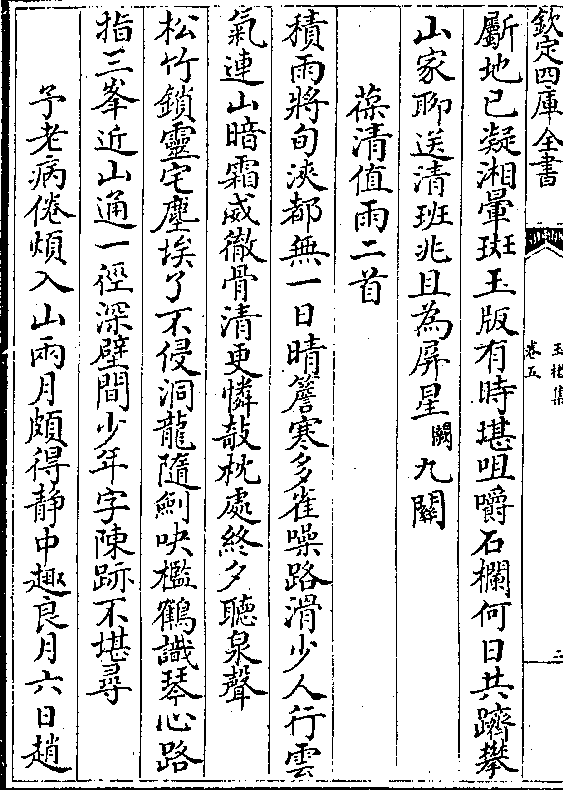 欽定四庫全書
玉楮集
卷五
二
斸地已凝湘暈斑玉版有時堪咀嚼石欄何日共躋攀
山家聊送清班兆且為屏星闕九關
葆清值雨二首
積雨將旬浹都無一日晴簷寒多雀噪路滑少人行雲
氣連山暗霜威徹骨清更憐敧枕處終夕聽泉聲
松竹鎖靈宅塵埃了不侵洞龍隨劍吷檻鶴識琴心路
指三峯近山通一徑深壁間少年字陳跡不堪尋
予老病倦煩入山兩月頗得静中趣良月六日趙